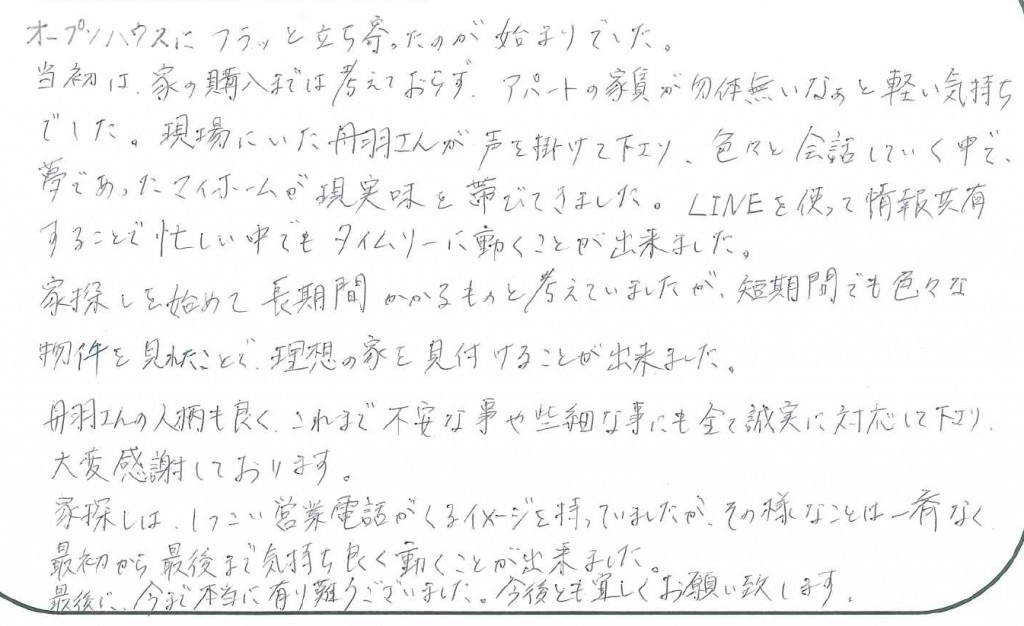 オープンハウスにフラッと立ち寄ったのが始まりでした。
当初は、家の購入までは考えておらず、アパートの家賃が勿体無いなぁと軽い気持ち
でした。現場にいた丹羽さんが声を掛けて下さり、色々と会話していく中で、
夢であったマイホームが現実味を帯びてきました。LINEを使って情報共有
することで忙しい中でもタイムリーに動くことが出来ました。
家探しを始めて長期間かかるものと考えていましたが、短期間でも色々な
物件を見れたことで、理想の家を見付けることが出来ました。
丹羽さんの人柄も良く、これまで不安な事や些細な事にも全て誠実に対応して下さり、
大変感謝しております。
家探しは、しつこい営業電話がくるイメージを持っていましたが、その様なことは一斉なく
最初から最後まで気持ち良く動くことが出来ました。
最後に、今まで本当に有り難うございました。今後とも宜しくお願い致します。